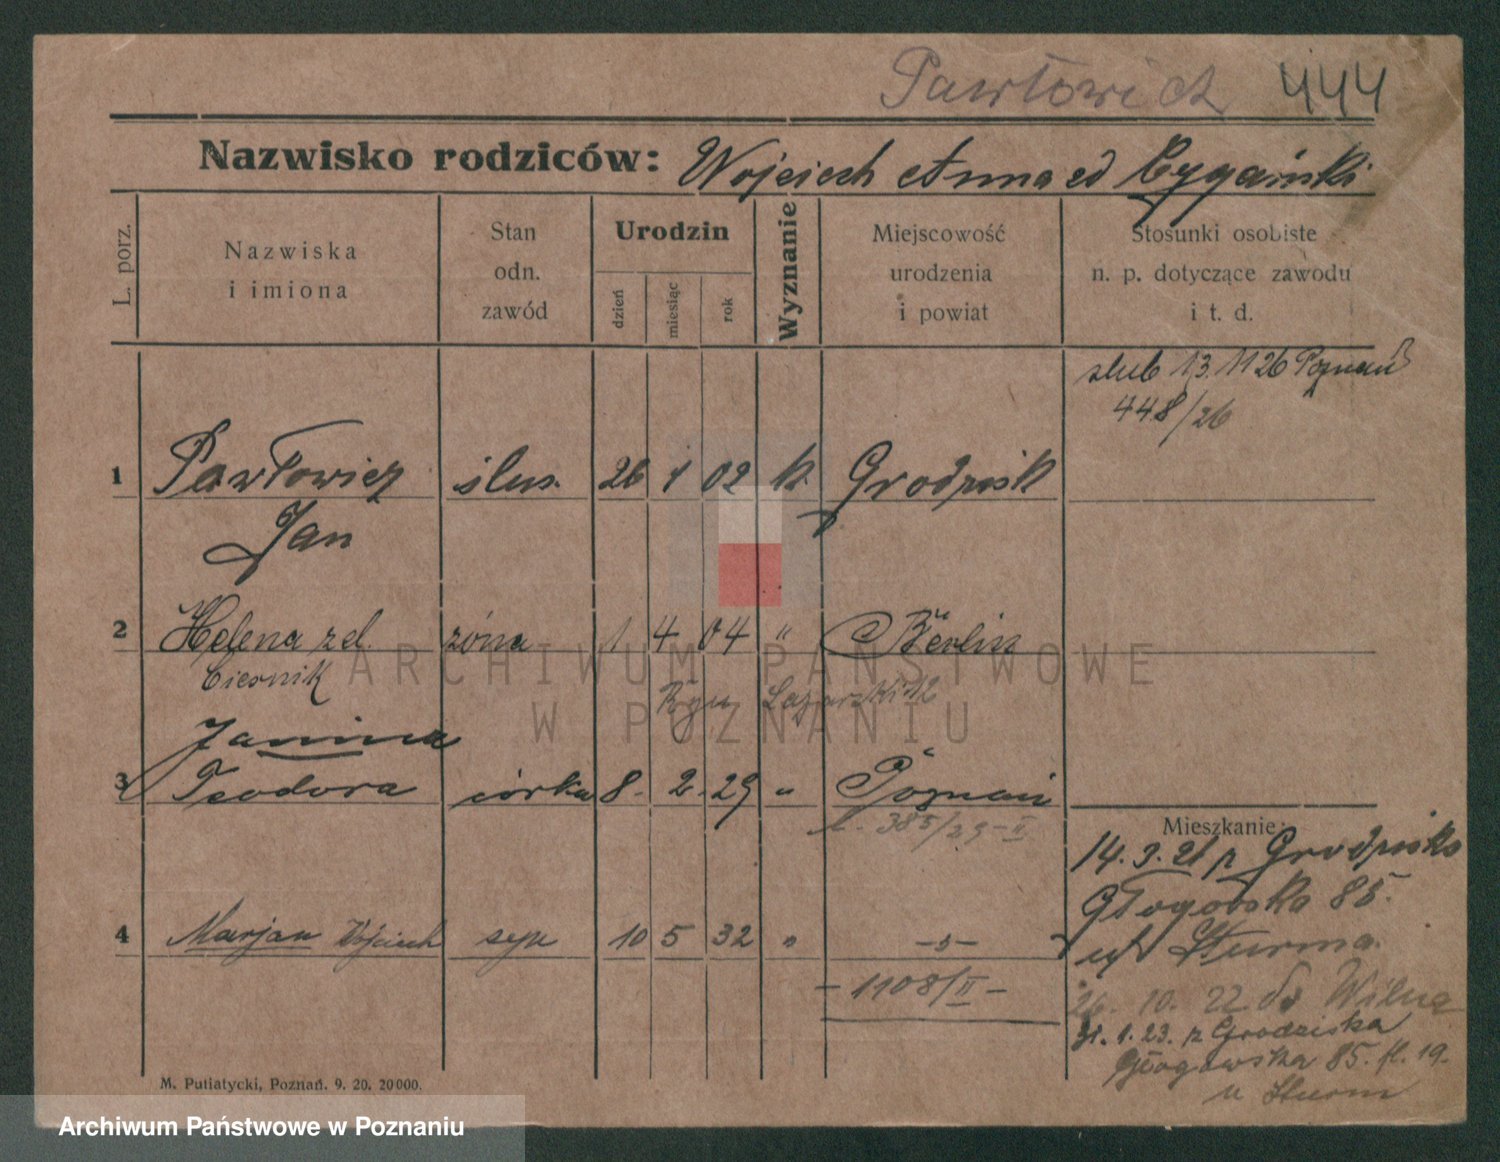 Pawłowicz 444
Nazwisko rodziców: Wojciech Anna zd Cygański
L. porz.
Nazwiska
i imiona
Stan
odn.
zawód
Urodzin
dzień
miesiąc
rok
Wyznanie
Miejscowość
urodzenia
i powiat
Stosunki osobiste
n. p. dotyczące zawodu
i t. d.
slub 13.11 26 Poznań
448/26
1 Pawłowicz ślus. 26 1 02 k. Grodzisk
Jan
2 Helena zd. żona 1 4 04 " Berlin
Ciesnik
Ryn Łazarski 12
Janina
3 Teodora córka 8. 2. 29 " Poznań
385/29-II
Mieszkanie:
14. 3. 21 z Grodziska
Głogowska 85.
Sturma.
4 Marjan Wojciech syn 10 5 32 " -"-
-1108/II-
26. 10. 22 do Wilna
31. 1. 23. z Grodziska
Głogowska 85. fl. 19.
u Sturm
M. Putiatycki, Poznań. 9. 20. 20000.
ARCHIWUM PAŃSTWOWE
W POZNANIU
Archiwum Państwowe w Poznaniu